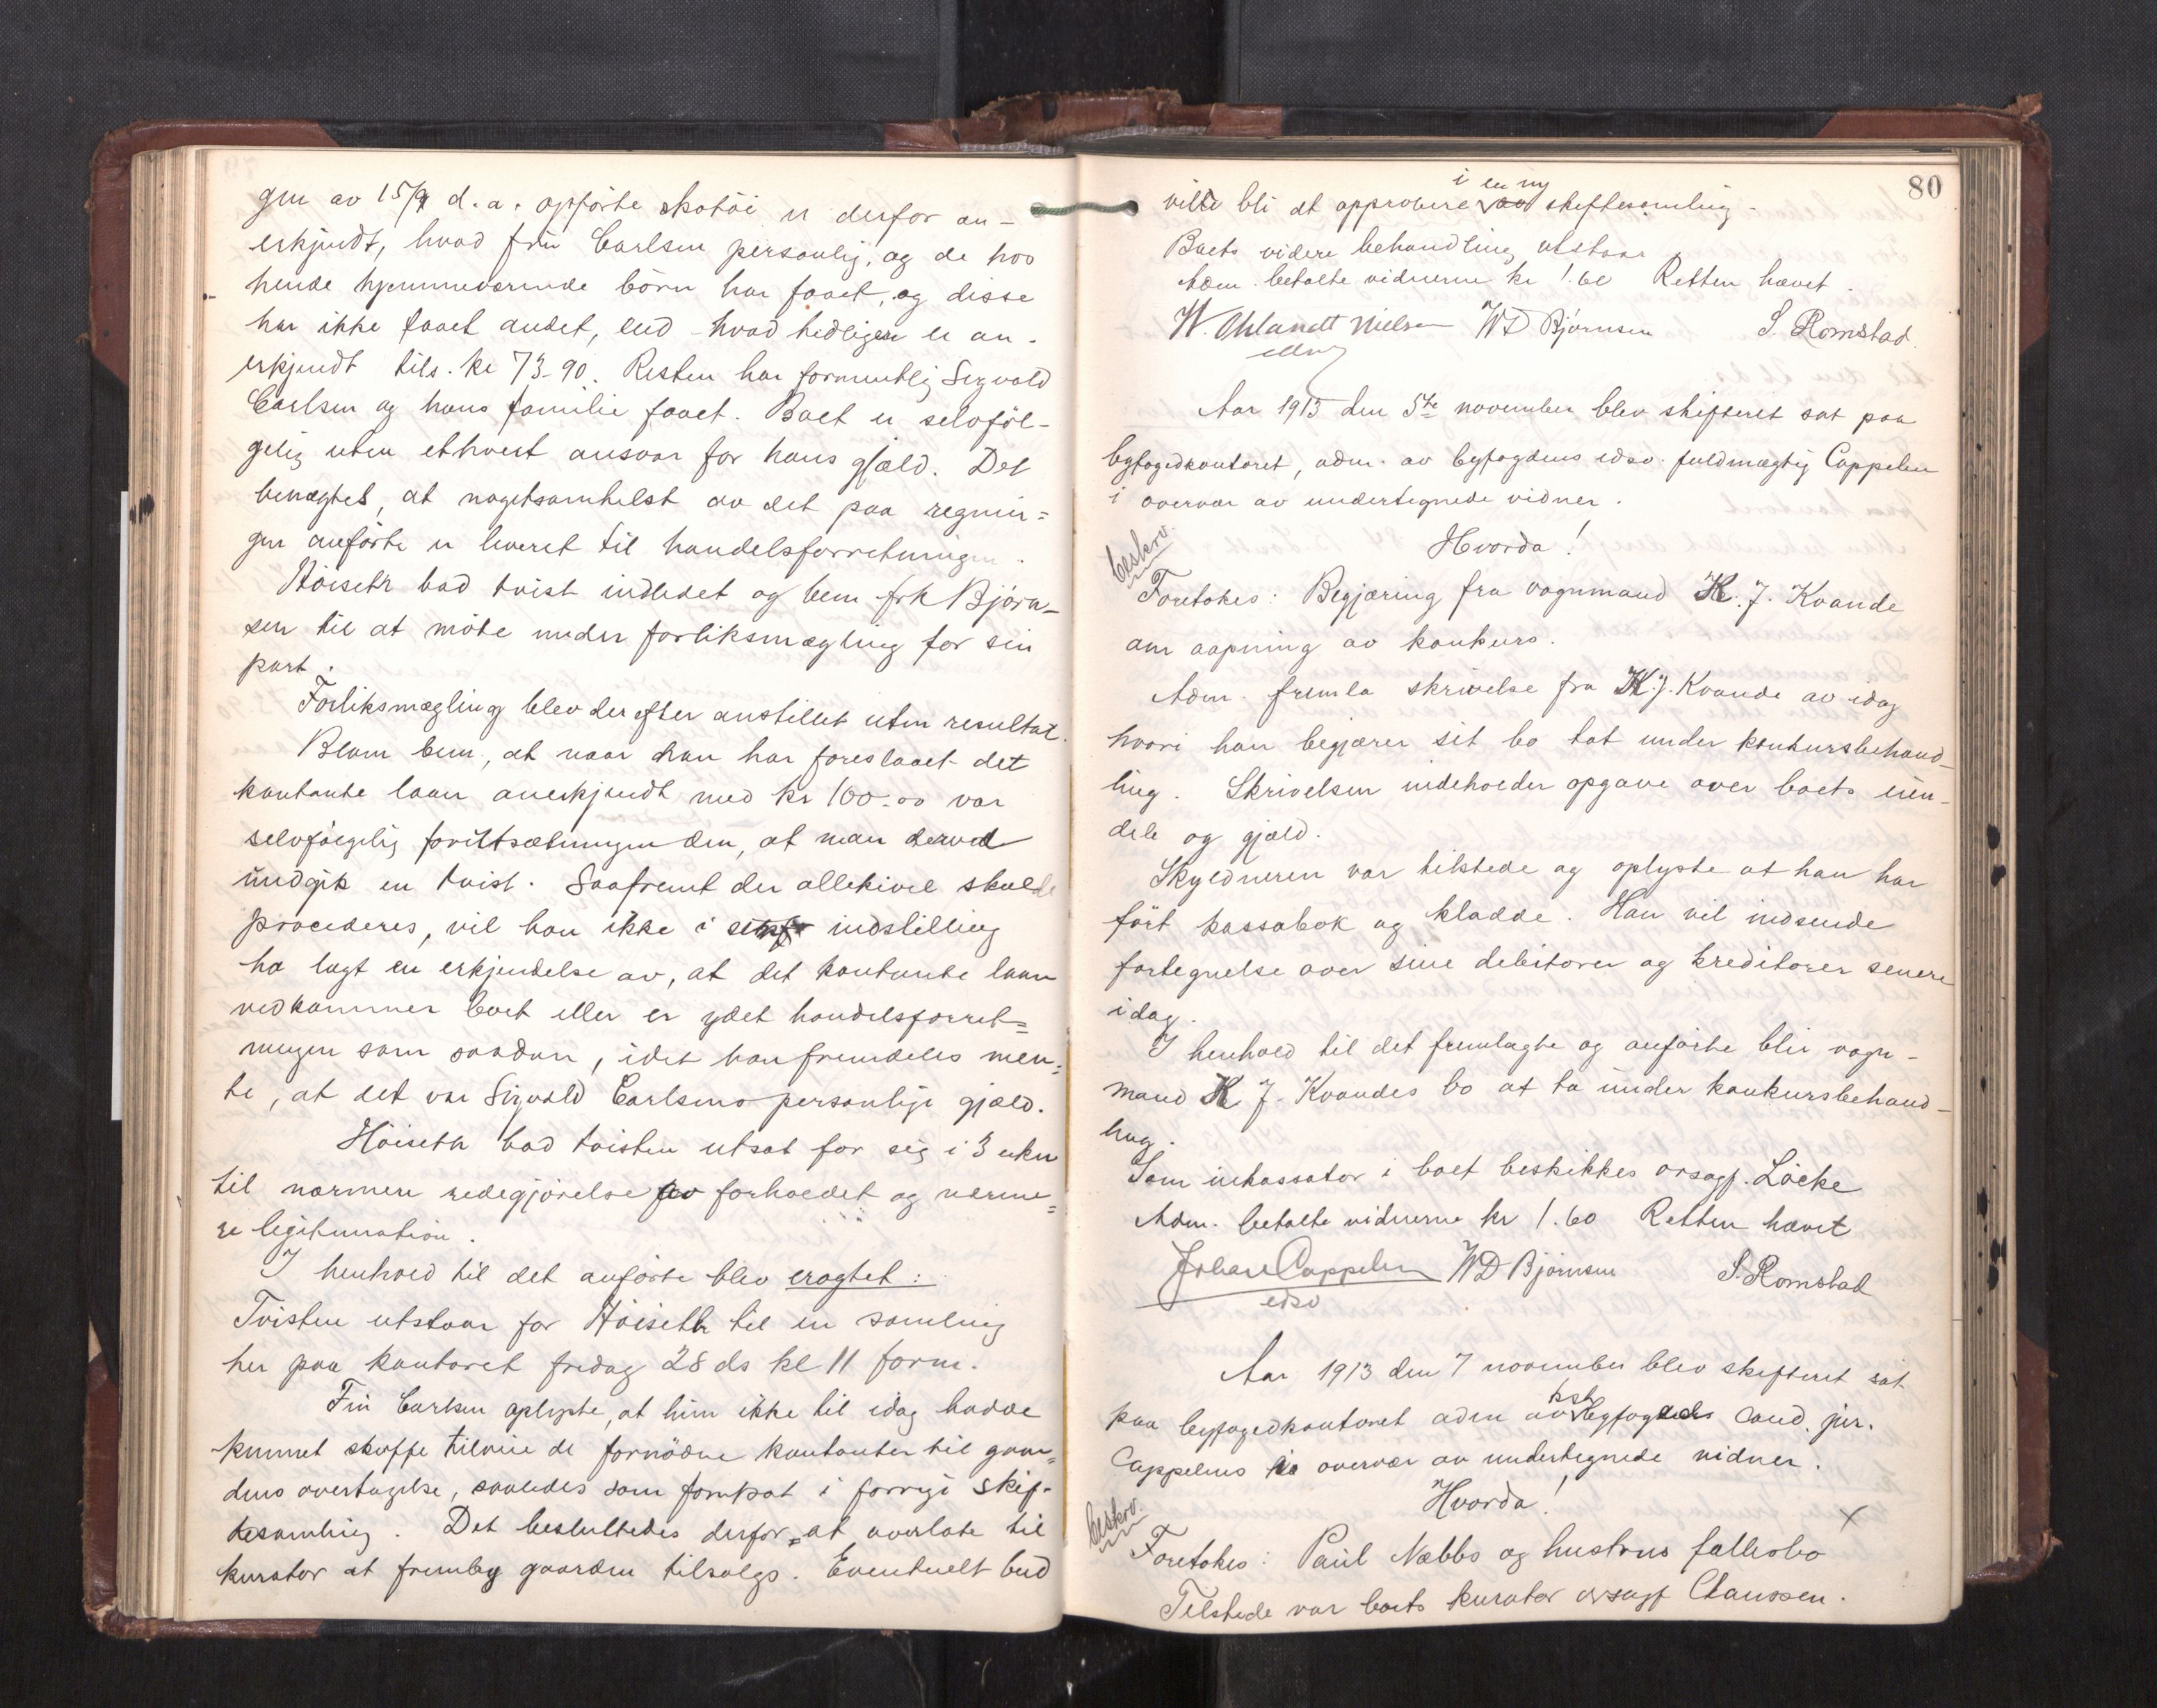 gen av 15/9 d.a. opførte skotöi er derfor an-
erkjendt, hvad fru Carlsen personlig, og de hos
hende hjemmeværende börn har faaet, og disse
har ikke faaet andet, end hvad tidligere er an-
erkjendt tils. kr 73.90. Resten har formentlig Sigvald
Carlsen og hans familie faaet. Boet er selvföl-
gelig uten ethvert ansvar for hans gjæld. Det
benægtes, at nogetsomhelst av det paa regnin=
gen anförte er leveret til handelsforretningen.
Höiseth bad tvist indledet og bem frk Björn-
sen til at möte under forliksmægling for sin
part.
Forliksmægling blev derefter anstillet uten resultat.
Blom bem., at naar han har foreslaaet det
kontante laan anerkjendt med kr 100.00 var
selvfölgelig forutsætningen den, at man derved
undgik en tvist. Saafremt der allikevel skulde
procederes, vil han ikke i sin indstilling
ha lagt en erkjendelse av, at det kontante laan
vedkommer boet eller er ydet handelsforret=
ningen som saadan, idet han fremdeles men=
te, at det var Sigvald Carlsens personlige gjæld.
Höiseth bad tvisten utsat for sig i 3 uker
til nærmere redegjörelse av forholdet og nærme=
re legitimation.
I henhold til det anförte blev eragtet:
Tvisten utstaar for Höiseth til en samling
her paa kontoret fredag 28 ds kl 11 form.
Fru Carlsen oplyste, at hun ikke til idag hadde
kunnet skaffe tilveie de fornödne kontanter til gaar=
dens overtagelse, saaledes som forutsat i forrige skif-
tesamling. Det besluttedes derfor at overlate til
kurator at fremby gaarden tilsalgs. Eventuelt bud
80
i en ny
vilde bli at approbere skiftesamling.
Boets videre behandling utstaar.
Adm. betalte vidnerne kr 1.60 Retten hævet.
W. Uhlandt Nielsen WD Björnsen S. Romstad
Aar 1913 den 5te november blev skifteret sat paa
byfogedkontoret, adm. av byfogdens edsv. fuldmægtig Cappelen
i overvær av undertegnede vidner.
Hvorda!
beskrv.
Foretokes: Begjæring fra vognmand K. J. Kvande
om aapning av konkurs.
Adm. fremla skrivelse fra K. J. Kvande av idag
hvori han begjærer sit bo tat under konkursbehand-
ling. Skrivelsen indeholder opgave over boets eien-
dele og gjæld.
Skyldneren var tilstede og oplyste at han har
fört kassabok og kladde. Han vil indsende
fortegnelse over sine debitorer og kreditorer senere
idag.
I henhold til det fremlagte og anförte blir vogn-
mand K J. Kvandes bo at ta under konkursbehand-
ling.
Som inkassator i boet beskikkes orsagf. Löcke
Adm. betalte vidnerne kr 1.60 Retten hævet
Johan Cappelen WD Björnsen S. Romstad
edsv
Aar 1913 den 7 november blev skifteret sat
kst
paa byfogedkontoret adm av byfogeds cand. jur.
Cappelens i overvær av undertegnede vidner.
Hvorda!
beskrv.
Foretokes: Paul Næbbs og hustrus fællesbo
Tilstede var boets kurator orsagf Claussen.